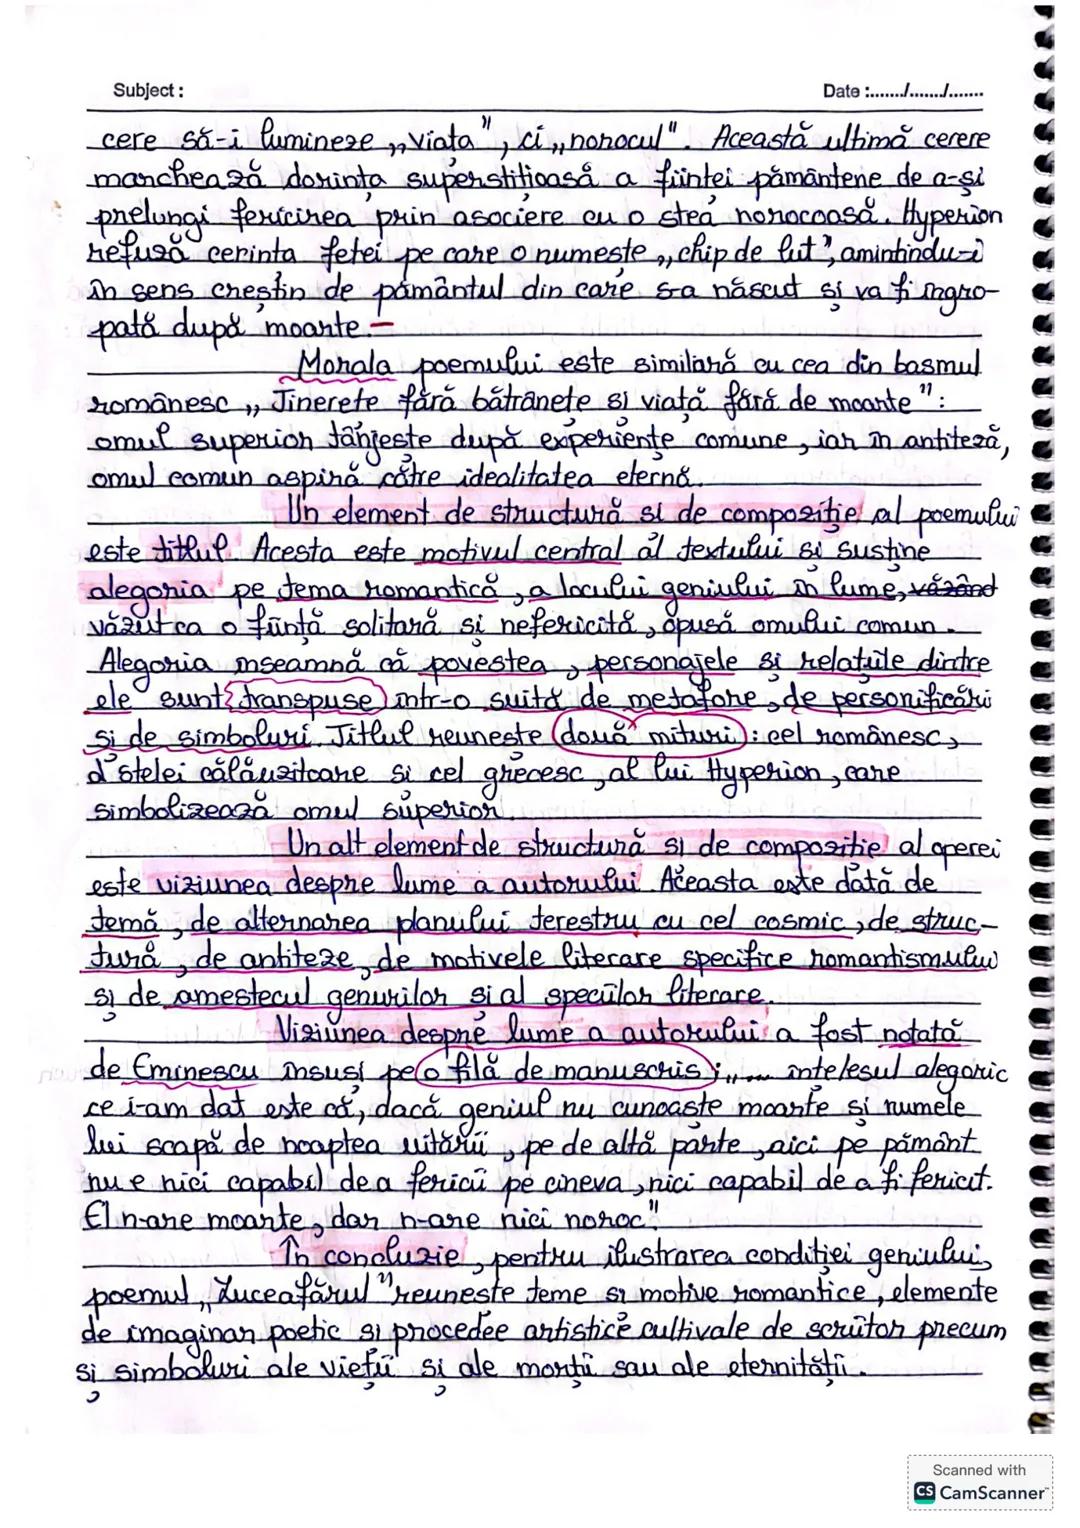 Subject :
Date :......./......./.......
cere să-i lumineze „viața", ci „norocul". Această ultimă cerere
marchează dorința superstițioasă a ființei pământene de a-și
prelungi fericirea prin asociere cu o stea norocoasă. Hyperion
refuză cerința fetei pe care o numește „chip de lut", amintindu-i
în sens creștin de pământul din care s-a născut și va fi îngro-
pată după moarte.
Morala poemului este similară cu cea din basmul
românesc „Tinerețe fără bătrânețe și viață fără de moarte":
omul superior tânjește după experiențe comune, iar în antiteză,
omul comun aspiră către idealitatea eternă.
Un element de structură și de compoziție al poemului
este titlul. Acesta este motivul central al textului și susține
alegoria pe tema romantică, a locului geniului în lume, văzând
văzut ca o ființă solitară și nefericită, opusă omului comun.
Alegoria înseamnă că povestea, personajele și relațiile dintre
ele sunt transpuse într-o suită de metafore, de personificări
și de simboluri. Titlul reunește două mituri: cel românesc,
al stelei călăuzitoare și cel grecesc, al lui Hyperion, care
simbolizează omul superior.
Un alt element de structură și de compoziție al operei
este viziunea despre lume a autorului. Aceasta este dată de
temă, de alternarea planului terestru cu cel cosmic, de struc-
tură, de antiteze, de motivele literare specifice romantismului
și de amestecul genurilor și al speciilor literare.
Viziunea despre lume a autorului a fost notată
de Eminescu însuși pe o filă de manuscris: „... înțelesul alegoric
ce i-am dat este că, dacă geniul nu cunoaște moarte și numele
lui scapă de noaptea uitării, pe de altă parte, aici pe pământ
nu e nici capabil de a ferici pe cineva, nici capabil de a fi fericit.
El n-are moarte, dar n-are nici noroc"
În concluzie, pentru ilustrarea condiției geniului,
poemul „Luceafărul" reunește teme și motive romantice, elemente
de imaginar poetic și procedee artistice cultivate de scriitor precum
și simboluri ale vieții și ale morții sau ale eternității.
Scanned with
CS CamScanner